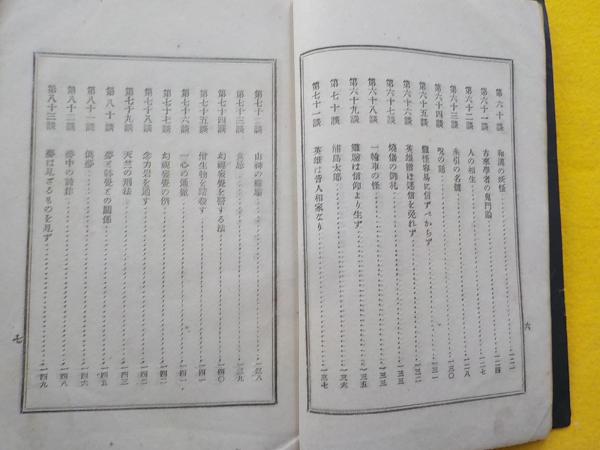 第六十談 和漢の妖怪 一二二
第六十一談 古來學者の鬼門論 一二四
第六十二談 人の相生 一二七
第六十三談 朱引の名僧 一二八
第六十四談 呪の話 一三〇
第六十五談 靈怪容易に信ずべからず 一三一
第六十六談 英雄猶ほ迷信を免れず 一三二
第六十七談 燒傷の御札 一三三
第六十八談 一輪車の怪 一三三
第六十九談 靈驗は信仰より生ず 一三五
第七十談 浦島太郎 一三六
第七十一談 英雄は皆人相家なり 一三七
六
第七十二談 山神の 一三八
第七十三談 一三九
第七十四談 幻視妄覺を醫する法 一四〇
第七十五談 惜生物を殺す 一四一
第七十六談 一心の 一四一
第七十七談 幻視妄覺の例 一四二
第七十八談 念力岩を通す 一四二
第七十九談 天竺の刑法 一四三
第八十談 夢と妄覺との關係 一四五
第八十一談 夢 一四六
第八十二談 夢中の詩作 一四八
第八十三談 夢は見ざるものを見ず 一四九
七